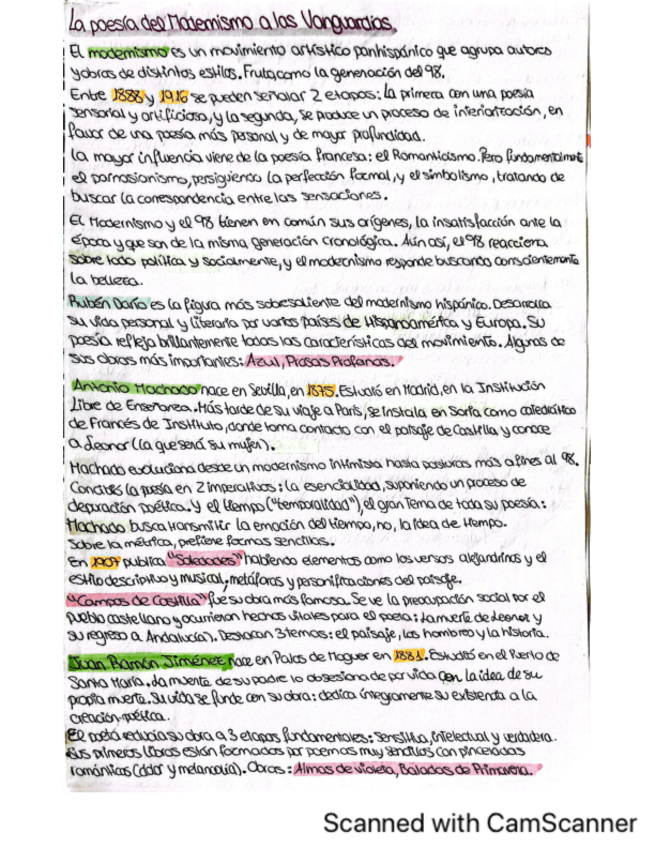 La poesía del Modernismo a las Vanguardias.
El modernismo es un movimiento artístico panhispánico que agrupa autores
y obras de distintos estilos. Fruto, como la generación del 98.
Entre 1888 y 1916 se pueden señalar 2 etapas: La primera con una poesía
sensorial y artificiosa, y la segunda, se produce un proceso de interiorización, en
favor de una poesía más personal y de mayor profundidad.
La mayor influencia viene de la poesía francesa: el Romanticismo. Pero fundamentalmente
el parnasianismo, persiguiendo la perfección formal, y el simbolismo, tratando de
buscar la correspondencia entre las sensaciones.
El Modernismo y el 98 tienen en común sus orígenes, la insatisfacción ante la
época y que son de la misma generación cronológica. Aún así, el 98 reacciona
sobre todo política y socialmente, y el modernismo responde buscando conscientemente
la belleza.
Rubén Darío es la figura más sobresaliente del modernismo hispánico. Desarrolla
su vida personal y literaria por varios países de Hispanoamérica y Europa. Su
poesía refleja brillantemente todas las características del movimiento. Algunas de
sus obras más importantes: Azul, Prosas Profanas.
Antonio Machado nace en Sevilla, en 1875. Estudió en Madrid, en la Institución
Libre de Enseñanza. Más tarde de su viaje a París, se instala en Soria como catedrático
de Francés de Instituto, donde toma contacto con el paisaje de Castilla y conoce
a Leonor (la que será su mujer).
Machado evoluciona desde un modernismo intimista hasta posturas más afines al 98.
Concibe la poesía en 2 imperativos: la esencialidad, suponiendo un proceso de
depuración poética. Y el tiempo ("temporalidad"), el gran Tema de toda su poesía:
Machado busca transmitir la emoción del tiempo, no, la idea de tiempo.
Sobre la métrica, prefiere formas sencillas.
En 1907 publica "Soledades" habiendo elementos como los versos alejandrinos y el
estilo descriptivo y musical, metáforas y personificaciones del paisaje.
"Campos de Castilla" fue su obra más famosa. Se ve la preocupación social por el
pueblo castellano y ocurrieron hechos vitales para el poeta: La muerte de Leonor y
su regreso a Andalucía). Destacan 3 temas: el paisaje, los hombres y la historia.
Juan Ramón Jiménez, nace en Palos de Moguer en 1881. Estudió en el Puerto de
Santa María. La muerte de su padre lo obsesiona de por vida con la idea de su
propia muerte. Su vida se funde con su obra: dedica íntegramente su existencia a la
creación poética.
El poeta reducía su obra a 3 etapas fundamentales: sensitiva, intelectual y verdadera.
Sus primeros libros están formados por poemas muy sencillos con pinceladas
románticas (dolor y melancolía). Obras: Almas de violeta, Baladas de Primavera.
Scanned with CamScanner